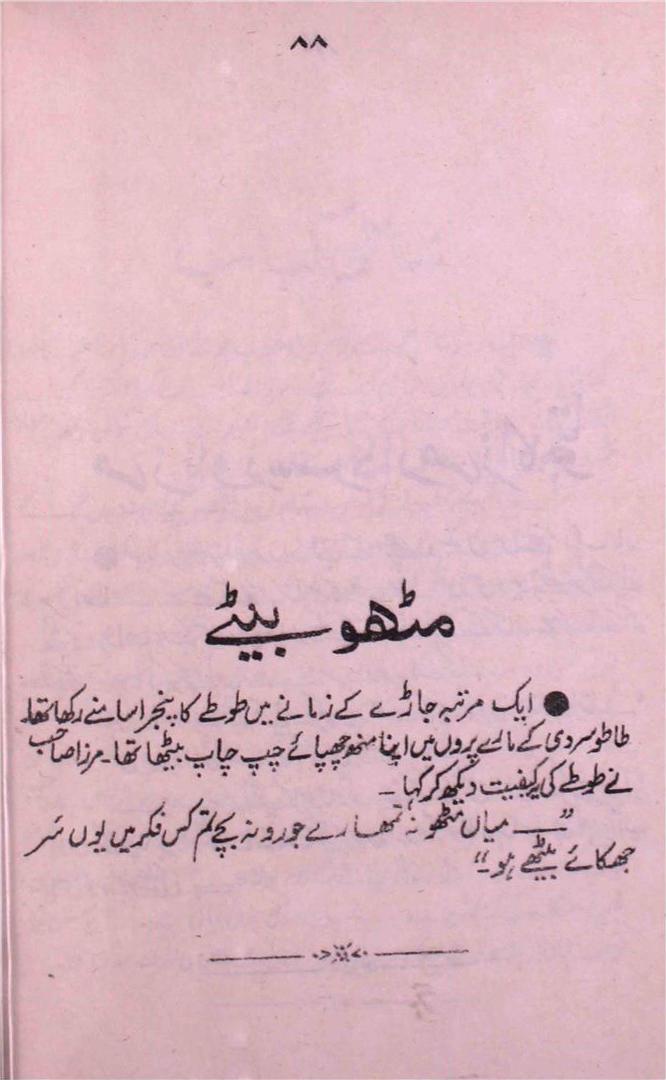 ۸۸
مٹھو بیٹے
● ایک مرتبہ جاڑے کے زمانے میں طوطے کا پنجرا سامنے رکھا تھا۔
طاطو سردی کے مارے پروں میں اپنا منھ چھپائے چپ چاپ بیٹھا تھا۔ مرزا صاحب
نے طوطے کی یہ کیفیت دیکھ کر کہا۔
”— میاں مٹھو نہ تمھارے جورو نہ بچے تم کس فکر میں یوں سَر
جھکائے بیٹھے ہو۔“